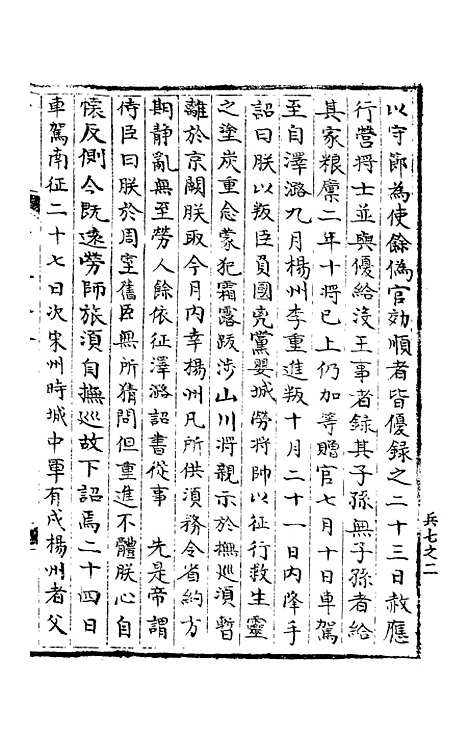 以守節為使餘偽官効順者皆優録之二十三日赦應
行營将士並與優給没王事者録其子孫無子孫者給
其家粮廩二年十将已上仍加等贈官七月十日車駕
至自澤潞九月楊州李重進叛十月二十一日内降手
詔曰朕以叛臣負國兇黨嬰城勞将帥以征行救生靈
之塗炭重念蒙犯霜露跋涉山川将親示於撫廵湏暫
離於京闕朕取今月内幸楊州凡所供湏務令省約方
期静亂無至勞人餘依征澤潞詔書從事　先是帝謂
侍臣曰朕於周室舊臣無所猜間但重進不體朕心自
懷反側今既逺勞師旅湏自撫廵故下詔焉二十四日
車駕南征二十七日次宋州時城中軍有戍楊州者父
兵七之二